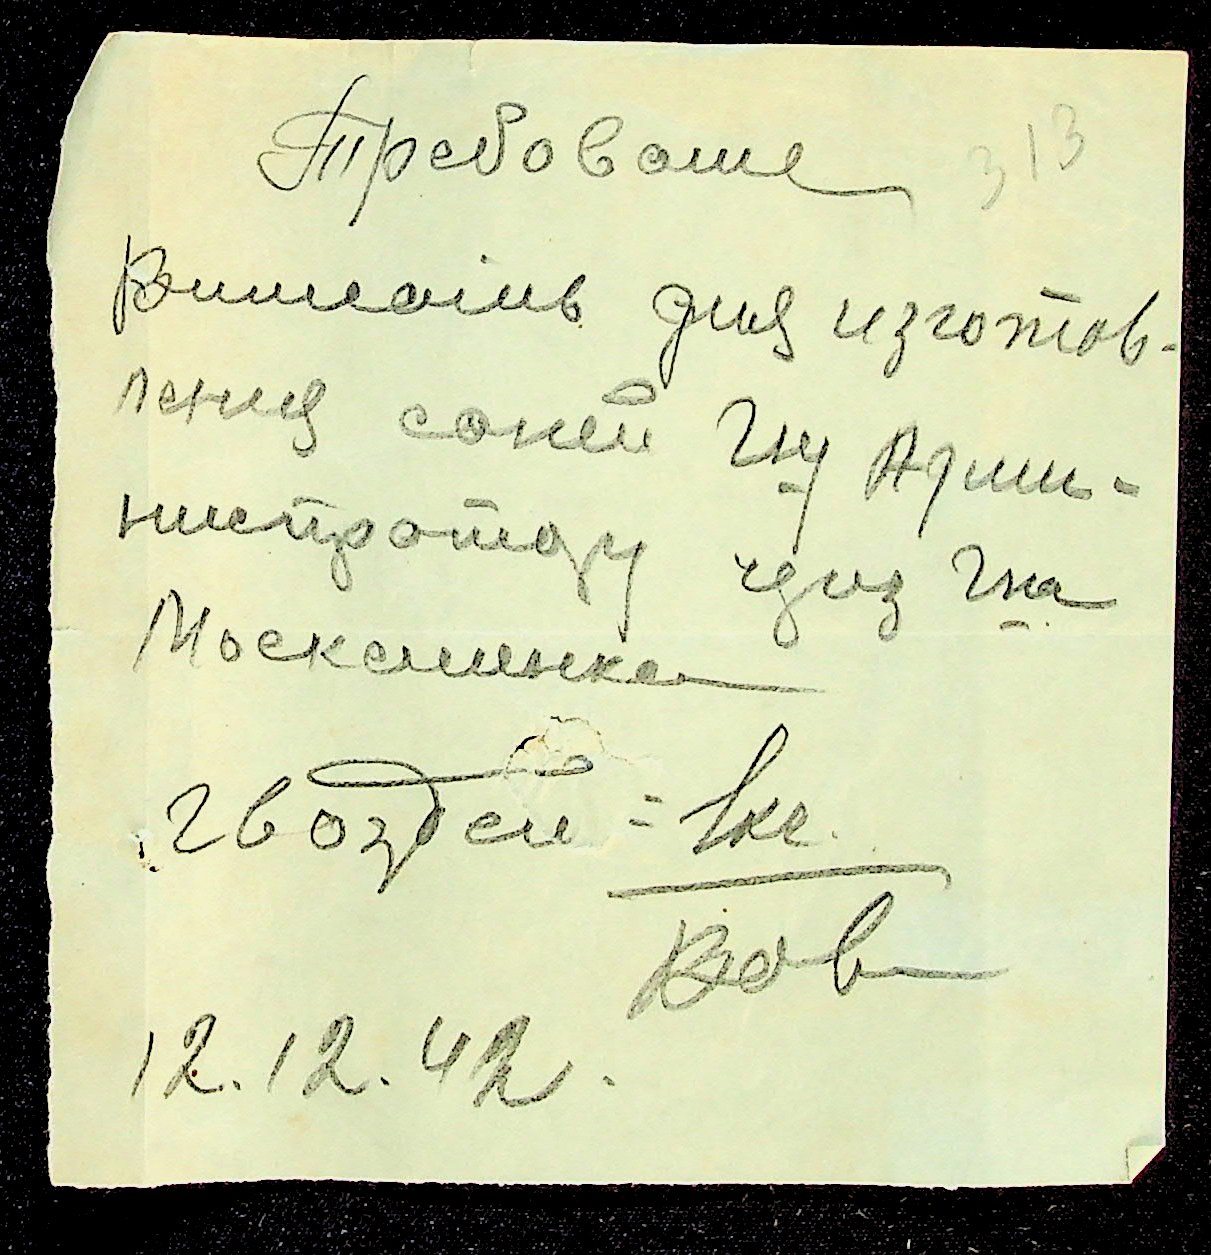 Требование
313
Выписать для изготов-
ления саней Г-ну Адми-
нистратору через Г-на
Москаленка
гвоздей = 1 кг.
12.12.42.